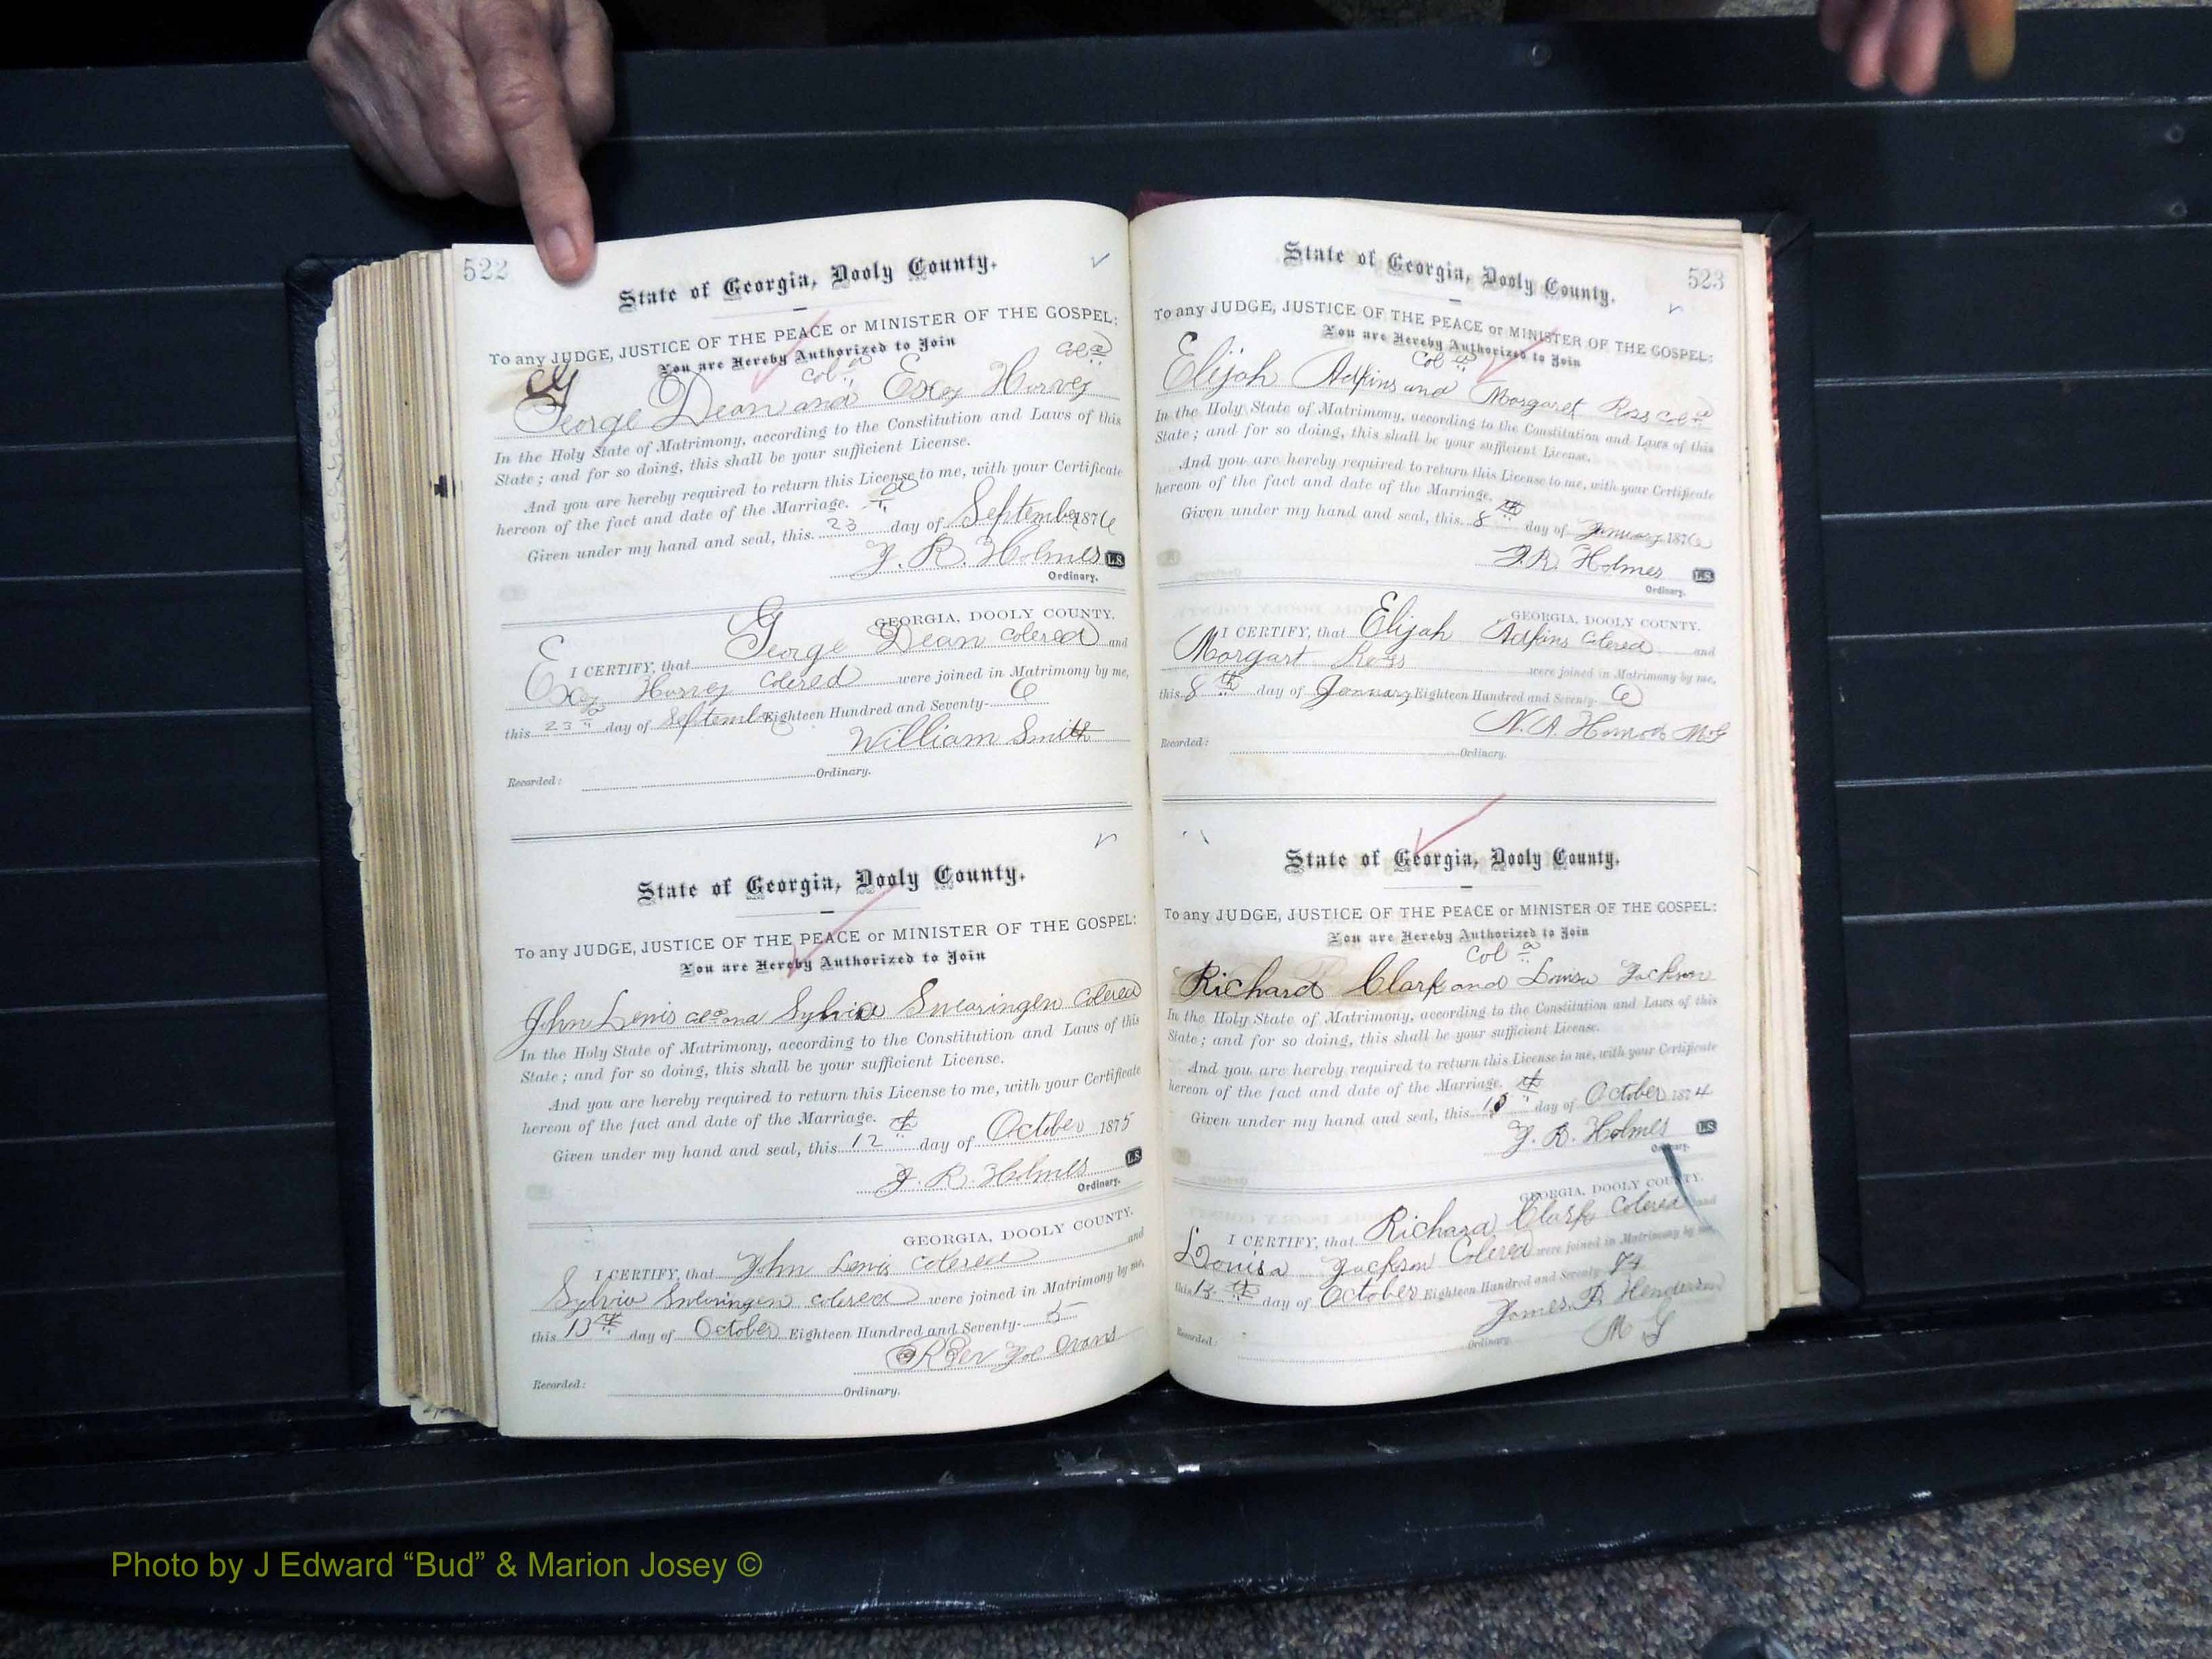 522
State of Georgia, Dooly County.
To any JUDGE, JUSTICE OF THE PEACE or MINISTER OF THE GOSPEL:
You are Hereby Authorized to Join
Col d Col d
George Dean and Exey Harvey
In the Holy State of Matrimony, according to the Constitution and Laws of this
State; and for so doing, this shall be your sufficient License.
And you are hereby required to return this License to me, with your Certificate
hereon of the fact and date of the Marriage.
Given under my hand and seal, this 23 day of September 1876
J. R. Holmes L.S.
Ordinary.
GEORGIA, DOOLY COUNTY.
I CERTIFY, that George Dean Colered and
Exey Harvey Colered were joined in Matrimony by me,
this 23 day of September Eighteen Hundred and Seventy- 6
William Smith
Recorded: Ordinary.
State of Georgia, Dooly County.
To any JUDGE, JUSTICE OF THE PEACE or MINISTER OF THE GOSPEL:
You are Hereby Authorized to Join
John Lewis Col d and Sylvia Swearingen Colered
In the Holy State of Matrimony, according to the Constitution and Laws of this
State; and for so doing, this shall be your sufficient License.
And you are hereby required to return this License to me, with your Certificate
hereon of the fact and date of the Marriage.
Given under my hand and seal, this 12 th day of October 1875
J. R. Holmes L.S.
Ordinary.
GEORGIA, DOOLY COUNTY.
I CERTIFY, that John Lewis Colered and
Sylvia Swearingen colered were joined in Matrimony by me,
this 13 th day of October Eighteen Hundred and Seventy- 5
Rev Joe Evans
Recorded: Ordinary.
523
State of Georgia, Dooly County.
To any JUDGE, JUSTICE OF THE PEACE or MINISTER OF THE GOSPEL:
You are Hereby Authorized to Join
Col d
Elijah Adkins and Margaret Ross Col d
In the Holy State of Matrimony, according to the Constitution and Laws of this
State; and for so doing, this shall be your sufficient License.
And you are hereby required to return this License to me, with your Certificate
hereon of the fact and date of the Marriage.
Given under my hand and seal, this 8 th day of January 1876
J. R. Holmes L.S.
Ordinary.
GEORGIA, DOOLY COUNTY.
I CERTIFY, that Elijah Adkins Colered and
Margart Ross were joined in Matrimony by me,
this 8 th day of January Eighteen Hundred and Seventy- 6
N. A. MG
Recorded: Ordinary.
State of Georgia, Dooly County.
To any JUDGE, JUSTICE OF THE PEACE or MINISTER OF THE GOSPEL:
You are Hereby Authorized to Join
Col d
Richard Clark and Louisa Jackson
In the Holy State of Matrimony, according to the Constitution and Laws of this
State; and for so doing, this shall be your sufficient License.
And you are hereby required to return this License to me, with your Certificate
hereon of the fact and date of the Marriage.
Given under my hand and seal, this th day of October 1874
J. R. Holmes L.S.
Ordinary.
GEORGIA, DOOLY COUNTY.
I CERTIFY, that Richard Clark Colered and
Louisa Jackson Colered were joined in Matrimony by me,
this 13 th day of October Eighteen Hundred and Seventy- 74
James Henderson
Recorded: Ordinary. M G
Photo by J Edward “Bud” & Marion Josey ©